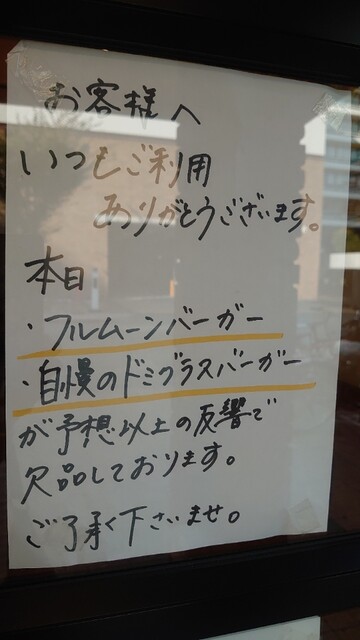 お客様へ
いつもご利用
ありがとうございます。
本日
・フルムーンバーガー
・自慢のドミグラスバーガー
が予想以上の反響で
欠品しております。
ご了承く下さいませ。